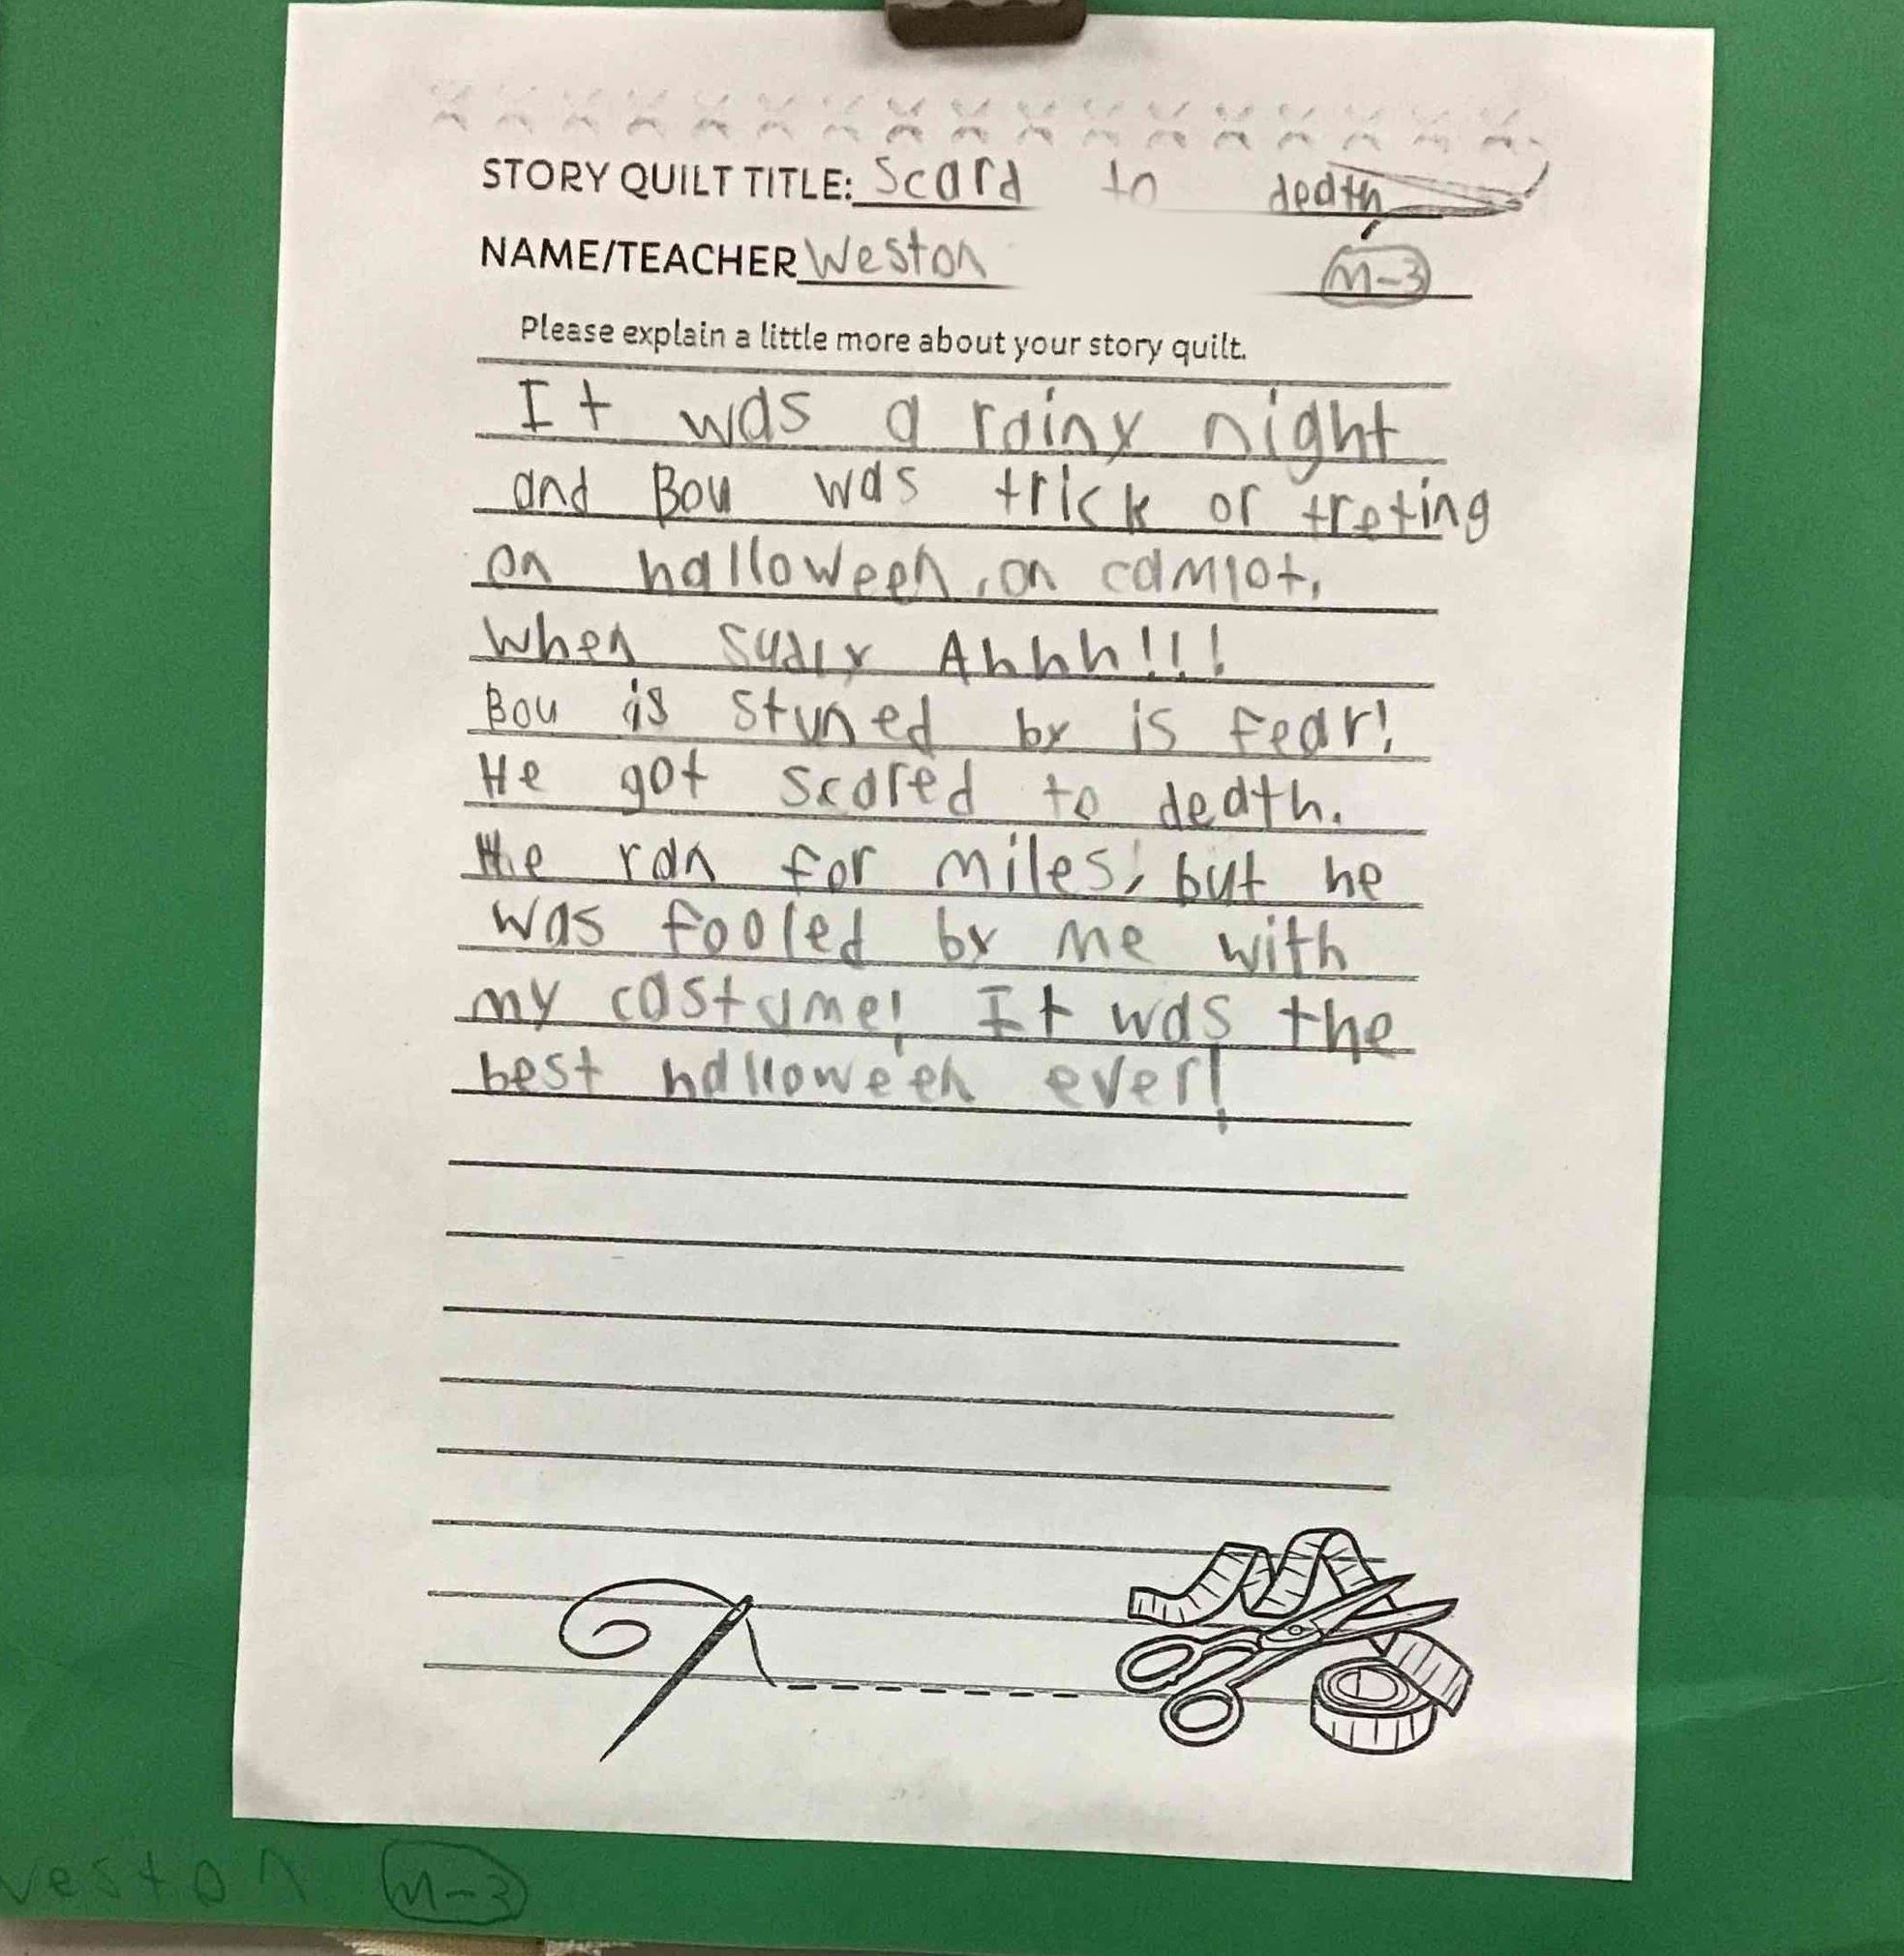 STORY QUILT TITLE: Scard to death
NAME/TEACHER Weston M-3
Please explain a little more about your story quilt.
It was a rainy night
and Bou was trick or treting
on halloween, on camlot.
When sudly Ahhh!!!
Bou is stuned by is fear!
He got scared to death.
He ran for miles, but he
was fooled by me with
my costume! It was the
best halloween ever!
Weston M-3